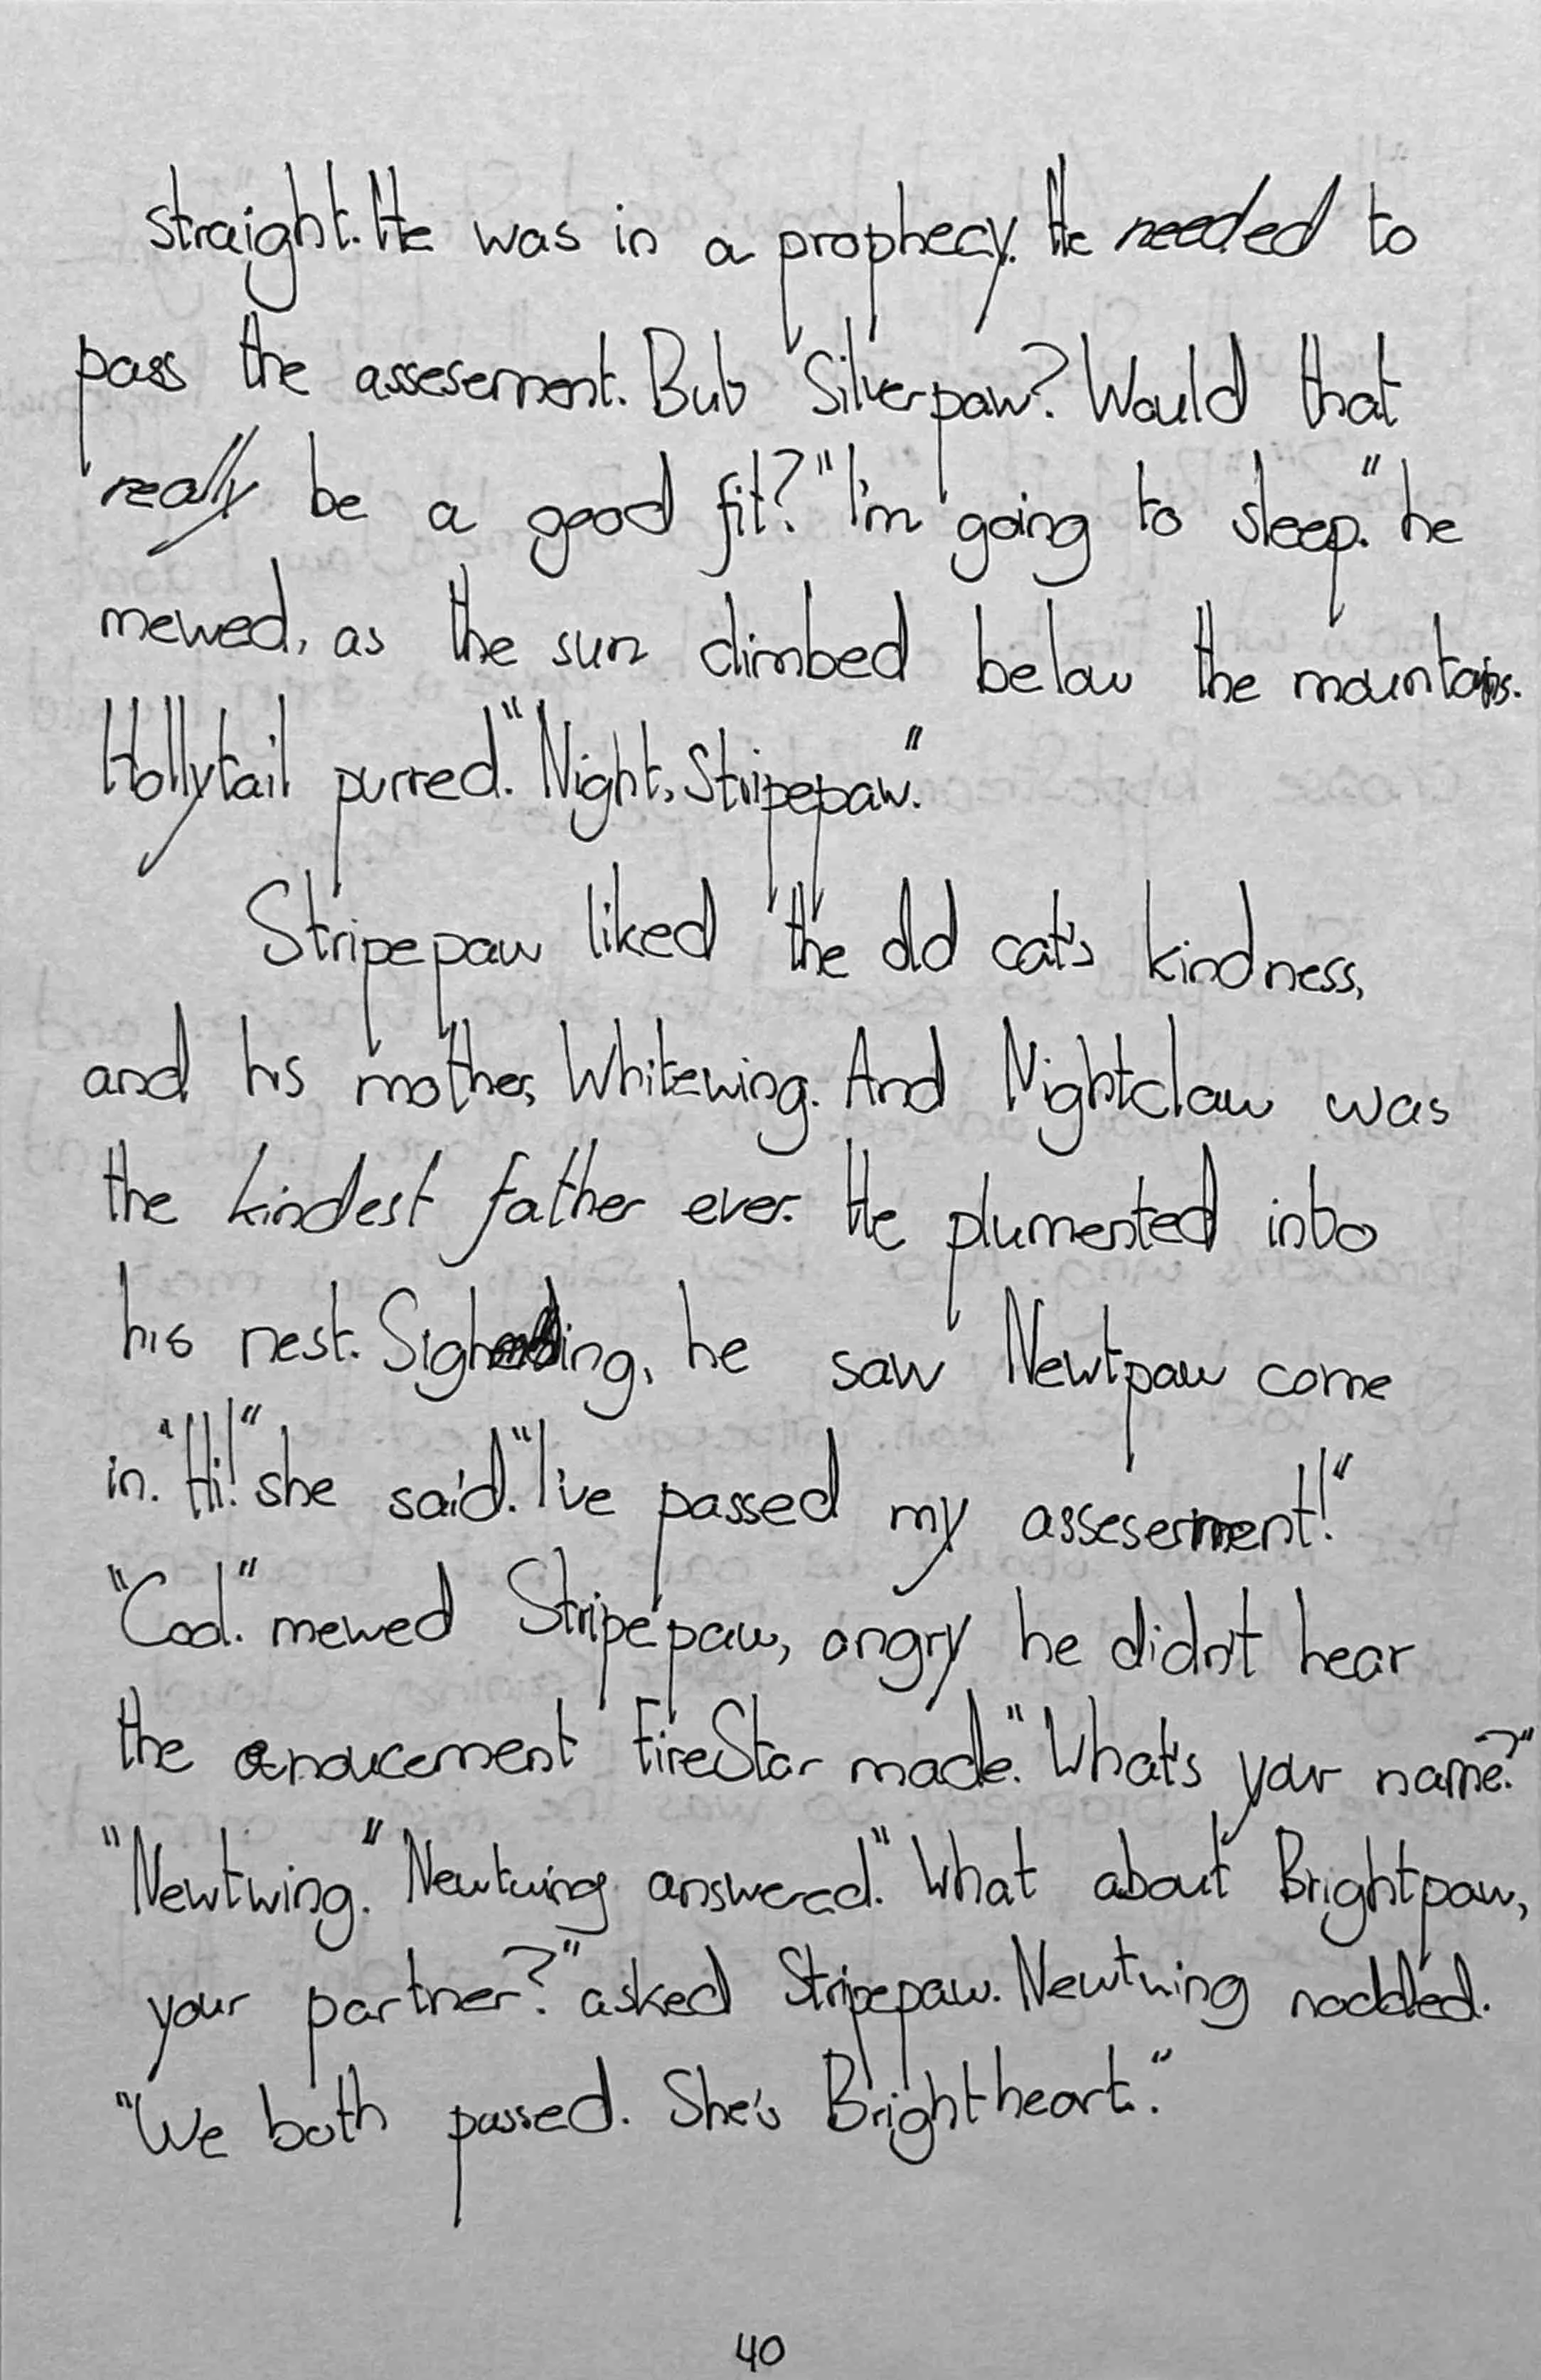 straight. He was in a prophecy. He needed to
pass the assesement. But Silverpaw? Would that
really be a good fit? "I'm going to sleep." he
mewed, as the sun climbed below the mountains.
Hollytail purred. "Night, Stripepaw."
Stripepaw liked the old cat's kindness,
and his mother, Whitewing. And Nightclaw was
the kindest father ever. He plumented into
his nest. Sighing, he saw Newtpaw come
in. "Hi!" she said. "I've passed my assesement!"
"Cool." mewed Stripepaw, angry he didn't hear
the anoucement FireStar made. "What's your name?"
"Newtwing." Newtwing answered. "What about Brightpaw,
your partner?" asked Stripepaw. Newtwing nodded.
"We both passed. She's Brightheart."
40